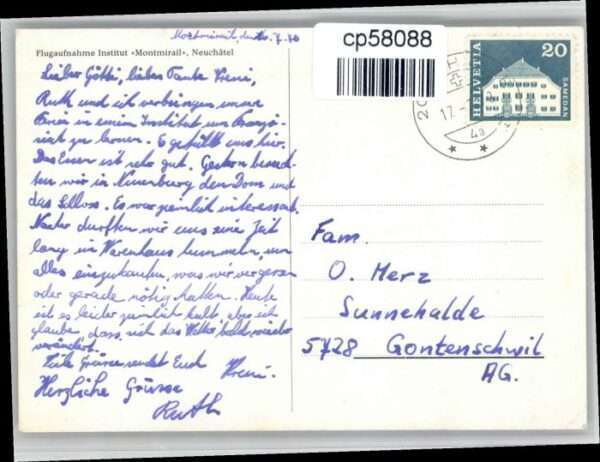 Montmirail, den 16.7.70
Flugaufnahme Institut «Montmirail», Neuchâtel
cp58088
HELVETIA
20
SAMEDAN
17.
4a
Lieber Götti, liebes Tante Vreni,
Ruth und ich verbringen unsere
Ferien in einem Institut um Franzö-
sisch zu lernen. Es gefällt uns hier.
Das Essen ist sehr gut. Gestern besuch-
ten wir in Neuenburg den Dom und
das Schloss. Es war ziemlich interessant.
Nacher durften wir uns eine Zeit
lang in Warenhaus tummeln, um
alles einzukaufen, was wir vergessen
oder gerade nötig hatten. Heute
ist es leider ziemlich kalt, aber ich
glaube, dass sich das Wetter bald wieder
verändert.
Viele Grüsse sendet Euch Vreni.
Herzliche Grüsse
Ruth
Fam.
O. Merz
Sunnehalde
5728 Gontenschwil
AG.